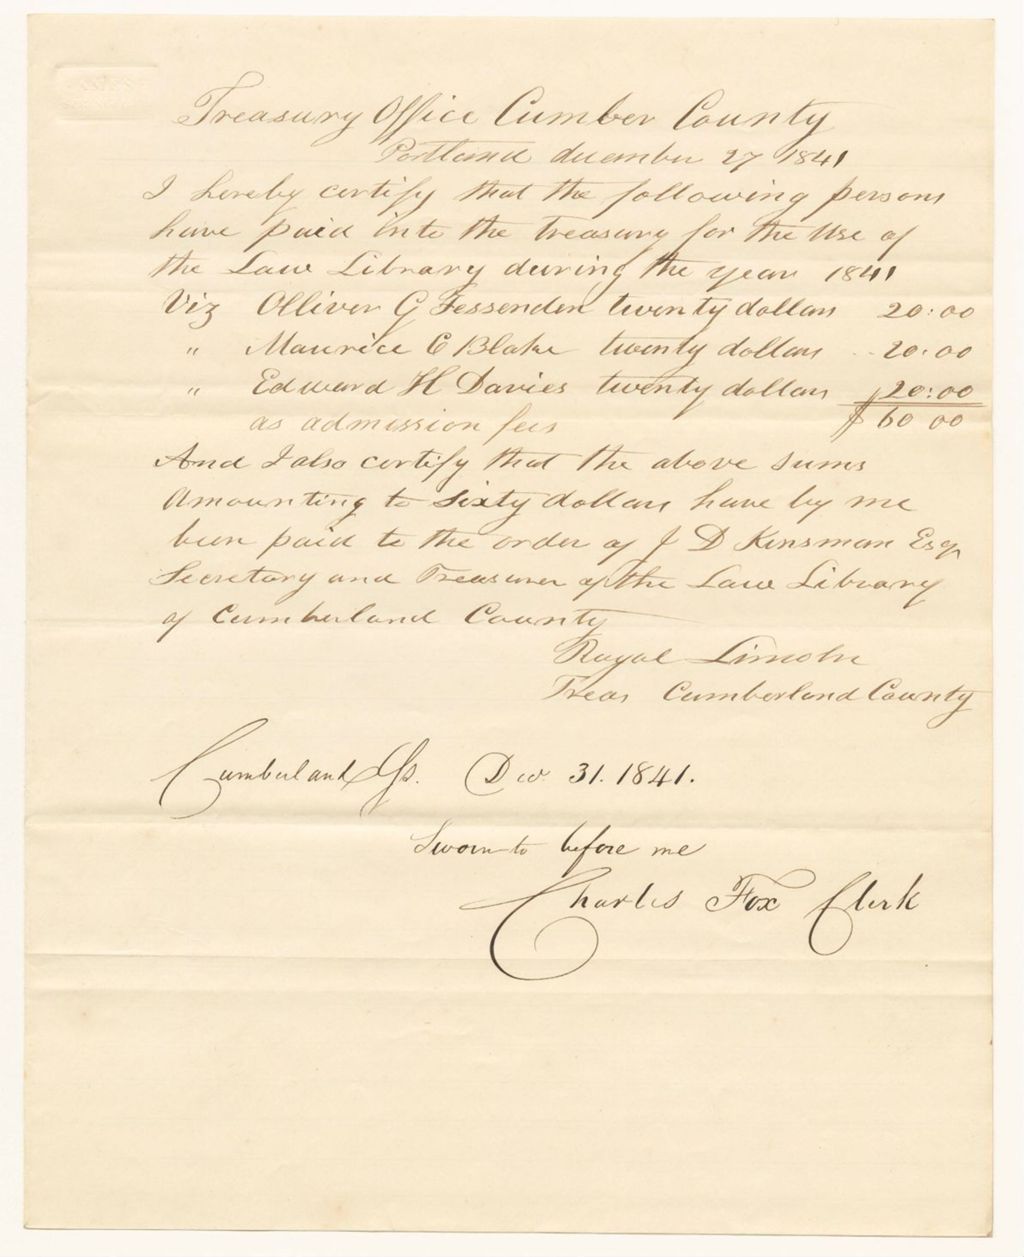 Treasury Office Cumber County
Portland december 27 1841
I hereby certify that the following persons
have paid into the treasury for the Use of
the Law Library during the year 1841
Viz Olliver G Fessenden twenty dollars 20:00
" Maurice C Blake twenty dollars .. 20:00
" Edward H Davies twenty dollars 20:00
as admission fees $ 60 00
And I also certify that the above sums
Amounting to Sixty dollars have by me
been paid to the order of J D Kinsman Esqr
Secretary and Treasurer of the Law Library
of Cumberland County
Royal Lincoln
Treas Cumberland County
Cumberland Ss. Dec. 31. 1841.
Sworn to before me
Charles Fox Clerk